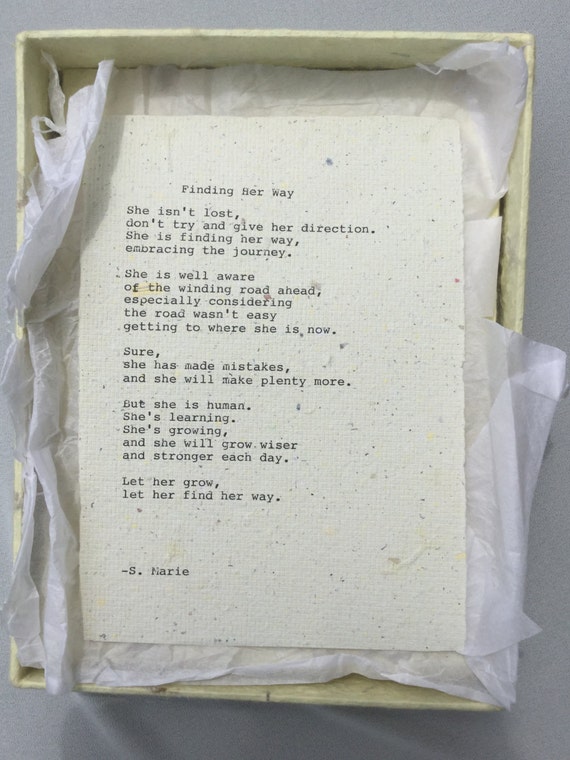 Finding Her Way
She isn't lost,
don't try and give her direction.
She is finding her way,
embracing the journey.
She is well aware
of the winding road ahead,
especially considering
the road wasn't easy
getting to where she is now.
Sure,
she has made mistakes,
and she will make plenty more.
But she is human.
She's learning.
She's growing,
and she will grow wiser
and stronger each day.
Let her grow,
let her find her way.
-S. Marie